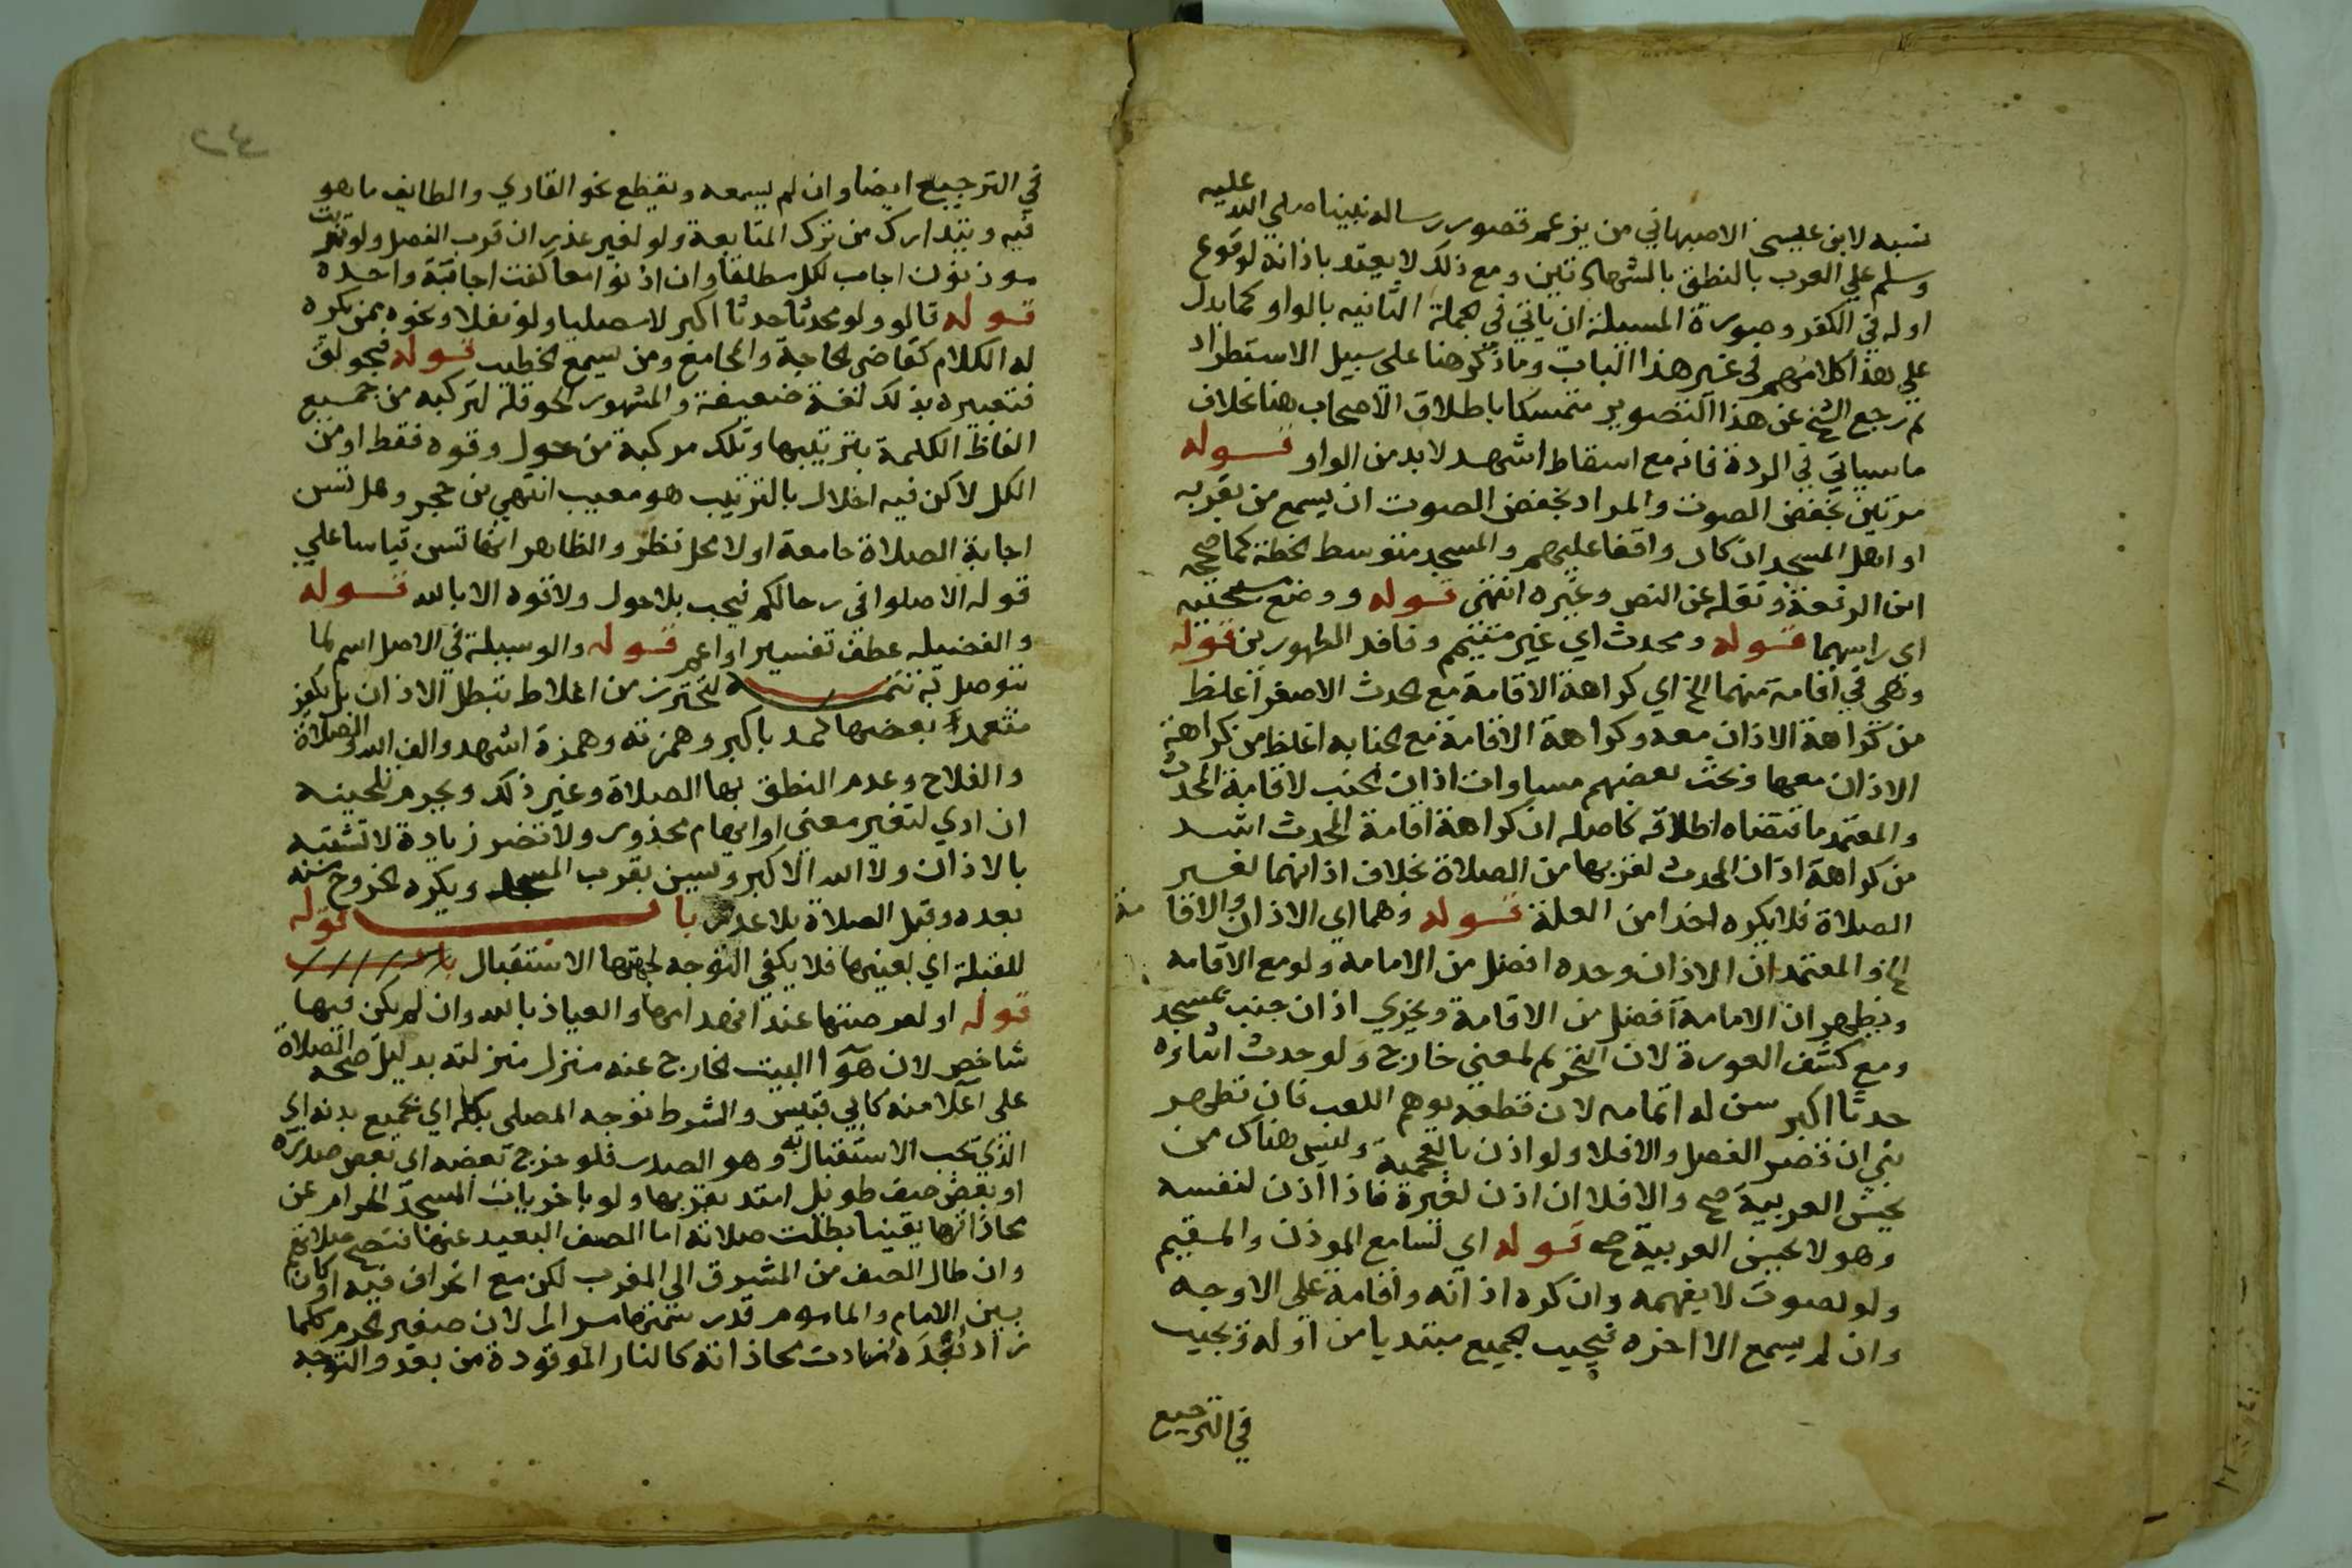 نسبه لابن عليسي الاصبهاني من يزعم قصور رسالة نبينا صلي الله عليه
وسلم علي العرب بالنطق بالشهادتين ومع ذلك لا يعتد باذانه لوقوع
اوله في الكفر وصورة المسيلة ان ياتي في الجملة الثانيه بالواو كما يدل
علي هذا كلامهم في غير هذا الباب وما ذكر هنا علي سبيل الاستطراد
ثم رجع الشيخ عن هذا التصوير متمسكا باطلاق الاصحاب هنا بخلاف
ما سياتي في الردة فانه مع اسقاط اشهد لا بد من الواو قوله
مرتين بخفض الصوت والمراد بخفض الصوت ان يسمع من بقربه
او اهل المسجد ان كان واقفا عليهم والمسجد متوسط الخطة كما صححه
ابن الرفعة ونقله عن النص وغيره انتهي قوله ووضع مسبحتيه
اي راسهما قوله ومحدث اي غير متيمم وفاقد الطهورين قوله
وهي في اقامة منهما الخ اي كراهة الاقامة مع الحدث الاصغر اغلظ
من كراهة الاذان معه وكراهة الاقامة مع الجنابه اغلظ من كراهة
الاذان معها وبحث بعضهم مساواة اذان الجنب لاقامة المحدث
والمعتمد ما اقتضاه اطلاقه كاصله ان كراهة اقامة المحدث اشد
من كراهة اذان المحدث لقربها من الصلاة بخلاف اذانهما لغير
الصلاة فلا يكره اخذا من العلة قوله وهما اي الاذان والاقامة
الخ والمعتمد ان الاذان وحده افضل من الامامه ولو مع الاقامه
ويظهر ان الامامة افضل من الاقامة ويجزي اذان جنب بمسجد
ومع كشف العورة لان التحريم لمعني خارج ولو حدث اثناءه
حدثا اكبر سن له اتمامه لان قطعه يوهم اللعب فان تطهر
بني ان قصر الفصل والا فلا ولو اذن بالعجمية وليس هناك من
يحسن العربية صح والا فلا ان اذن لغيرة فاذا اذن لنفسه
وهو لا يحسن العربية صح قوله اي لسامع الموذن والمقيم
ولو لصوت لا يفهمه وان كره اذانه واقامة علي الاوجه
وان لم يسمع الا اخره فيجيب الجميع مبتديا من اوله ويجيب
في الترجيع
٢٤
في الترجيع ايضا وان لم يسمعه ويقطع نحو القاري والطايف ما هو
فيه ويتدارك من ترك المتابعة ولو لغير عذر ان قرب الفصل ولو ترتب
موذنون اجاب لكل مطلقا وان اذنوا معا كفت اجابة واحدة
قوله قالو ولو محدثا حدثا اكبر لا مصليا ولو نفلا ونحوه ممن يكره
له الكلام كقاضي الحاجة والمجامع ومن يسمع الخطيب قوله فيحولق
فتعبيره بذلك لغة ضعيفة والمشهور الحوقلة لتركبه من جميع
الفاظ الكلمة بترتيبها وتلك مركبة من حول وقوه فقط او من
الكل لاكن فيه اخلال بالترتيب هو معيب انتهي بن حجر وهل تسن
اجابة الصلاة جامعة اولا محل نظر والظاهر انها تسن قياسا علي
قوله الا صلوا في رحالكم فيجب بلا حول ولا قوه الا بالله قوله
والفضيله عطف تفسير او اعم قوله والوسيلة في الاصل اسم لما
يتوصل به تتمه ليحترز من اغلاط تبطل الاذان بل يكفر
متعمد بعضها كمد باكبر وهمزته وهمزة اشهد والف الله والصلاة
والفلاح وعدم النطق بها الصلاة وغير ذلك ويحرم تلحينه
ان ادي لتغير معني او ايهام محذور ولا تضر زيادة لا تشتبه
بالاذان ولا الله الاكبر ويسن بقرب المسجد ويكره الخروج منه
بعده وقبل الصلاة بلا عذر باب قوله
للقبلة اي لعينها فلا يكفي التوجه لجهتها الاستقبال
قوله او لعرصتها عند انهدامها والعياذ بالله وان لم يكن فيها
شاخص لان هوآ البيت الخارج عنه منزل منزلته بدليل صحة الصلاة
علي اعلا منه كابي قبيس والشرط توجه المصلي بكله اي بجميع بدنه اي
الذي يجب الاستقبال به وهو الصدر فلو خرج بعضه اي بعض صدره
او بعض صف طويل امتد بقربها ولو باخريات المسجد الحرام عن
محاذاتها يقينا بطلت صلاته اما الصف البعيد عنها فتصح صلاتهم
وان طال الصف من المشرق الي المغرب لكن مع انحراف فيه او كان
بين الامام والماموم قدر سمتها مرارا لان صغير الجرم كلما
زاد بعده زادت محاذاته كالنار الموقودة من بعد والتوجه